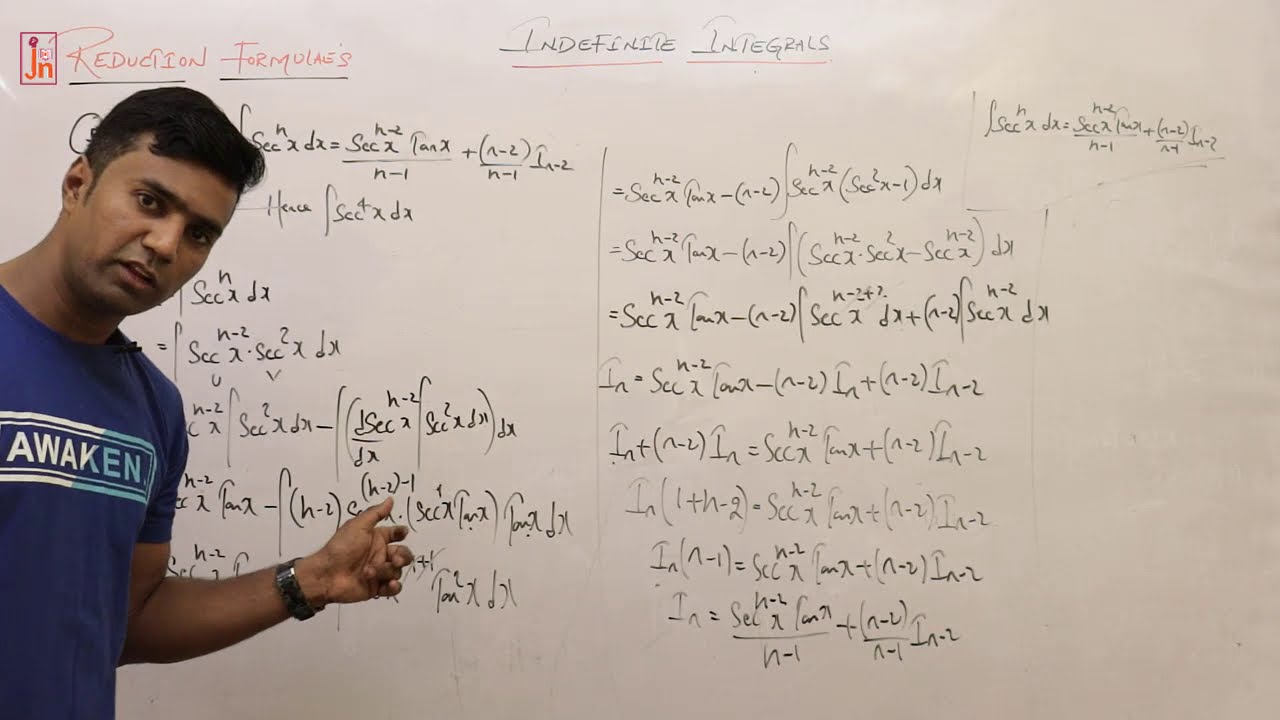 jn
REDUCTION FORMULAE'S
INDEFINITE INTEGRALS
∫Secⁿx dx = Secⁿ⁻²x Tanx/n-1 + (n-2)/n-1 Iₙ₋₂
Hence ∫Sec⁴x dx
∫Secⁿx dx
= ∫Secⁿ⁻²x · Sec²x dx
U V
∫Sec²x dx - ∫(dSecⁿ⁻²x/dx ∫Sec²x dx) dx
ⁿ⁻²x Tanx - ∫(n-2) (n-2)-1 · (Sec¹x Tanx) Tanx dx
n-2 +1 Tan²x dx
AWAKEN.
= Secⁿ⁻²x Tanx - (n-2) ∫Secⁿ⁻²x (Sec²x-1) dx
= Secⁿ⁻²x Tanx - (n-2) ∫(Secⁿ⁻²x · Sec²x - Secⁿ⁻²x) dx
= Secⁿ⁻²x Tanx - (n-2) ∫Secⁿ⁻²⁺²x dx + (n-2) ∫Secⁿ⁻²x dx
Iₙ = Secⁿ⁻²x Tanx - (n-2) Iₙ + (n-2) Iₙ₋₂
Iₙ + (n-2) Iₙ = Secⁿ⁻²x Tanx + (n-2) Iₙ₋₂
Iₙ (1+n-2) = Secⁿ⁻²x Tanx + (n-2) Iₙ₋₂
Iₙ (n-1) = Secⁿ⁻²x Tanx + (n-2) Iₙ₋₂
Iₙ = Secⁿ⁻²x Tanx/n-1 + (n-2)/n-1 Iₙ₋₂
∫Secⁿx dx = Secⁿ⁻²x Tanx/n-1 + (n-2)/n-1 Iₙ₋₂